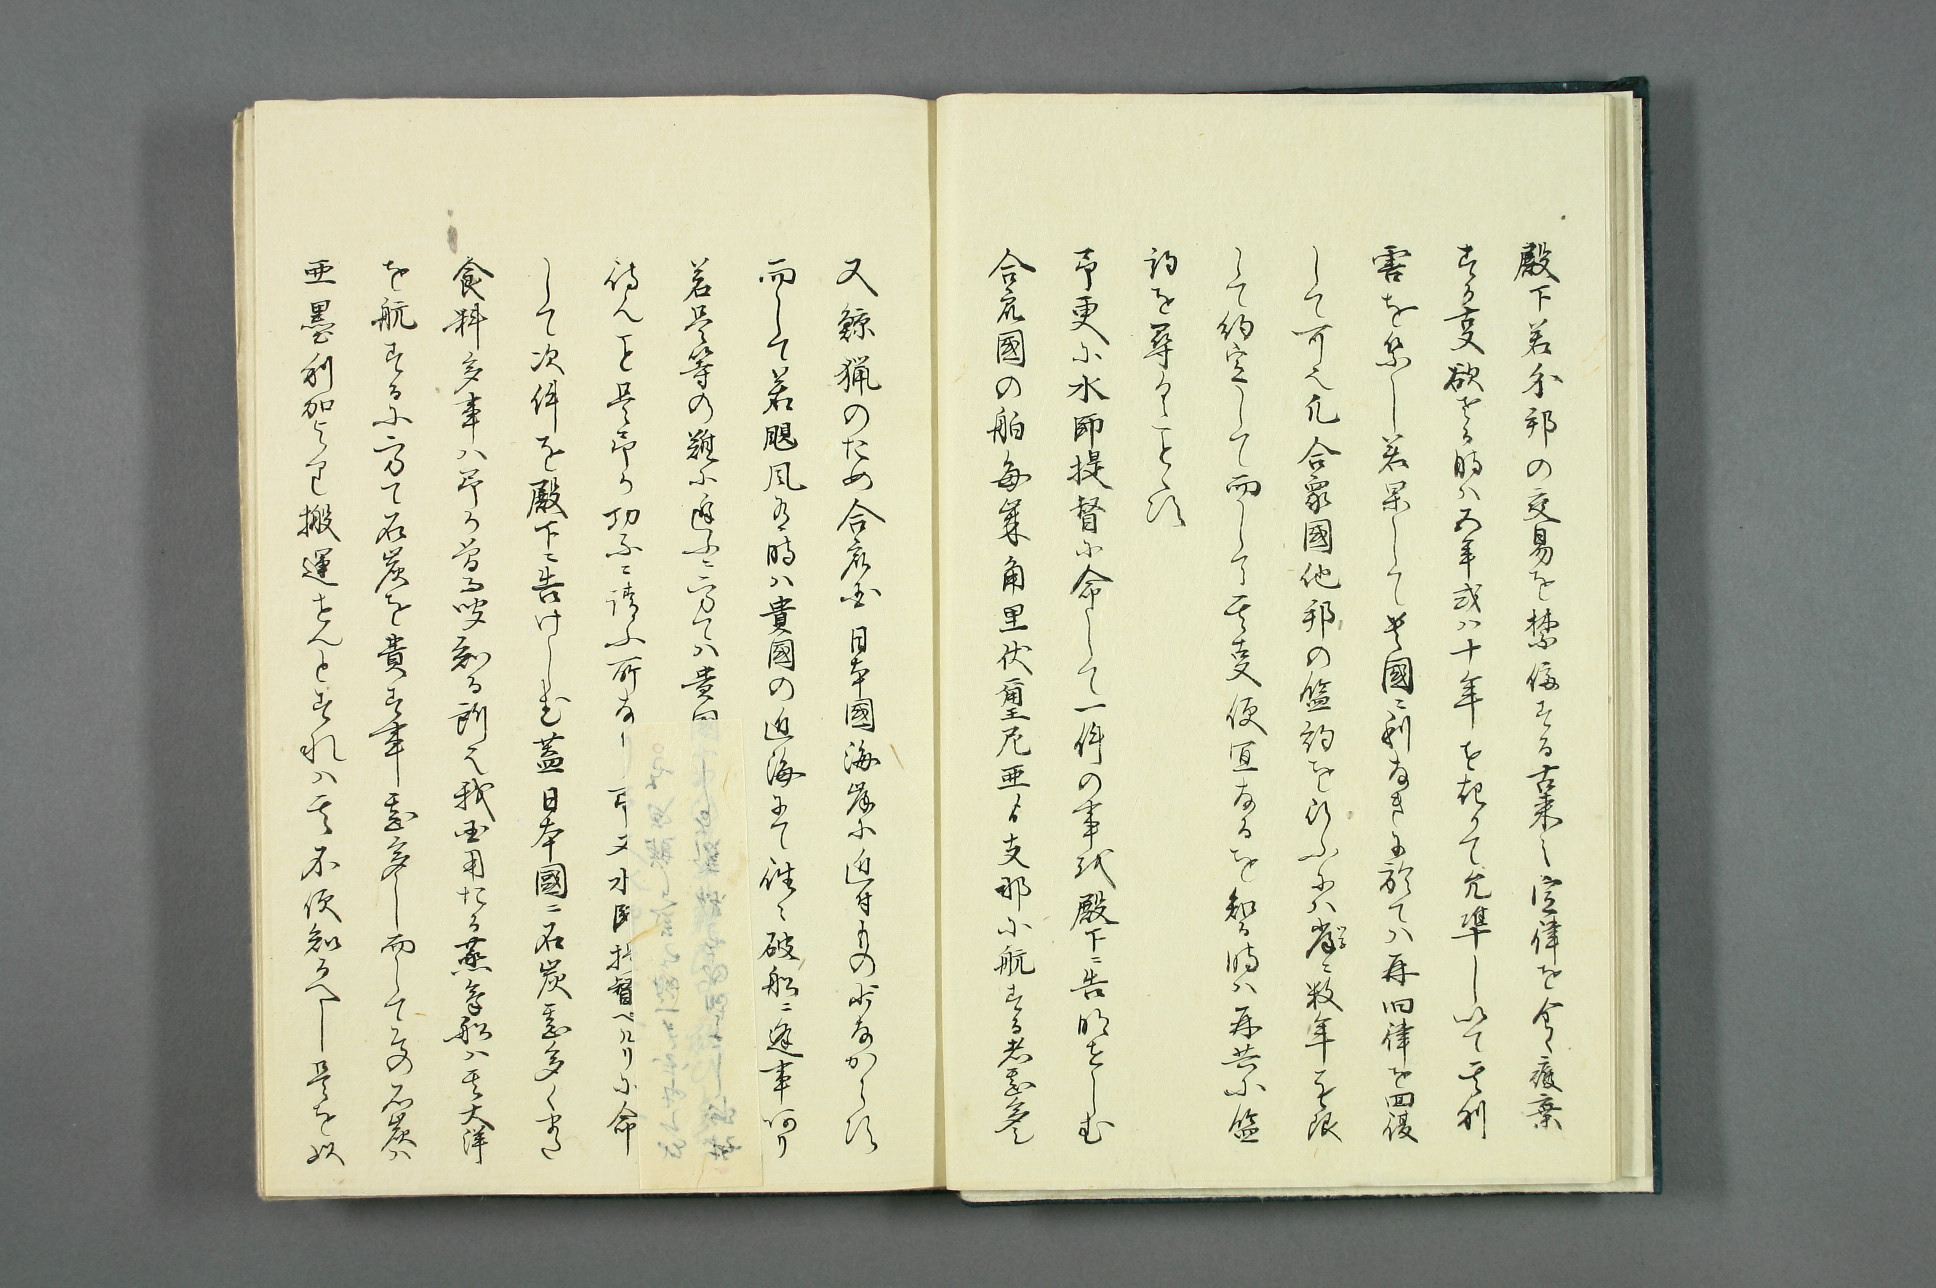 殿下若外邦の交易を禁停する古来之定律を全く廃棄
する事欲せさる時ハ五年或ハ十年を期て允準し以て其利
害を察し若果して貴國ニ利なきに於てハ再旧律を回復
して可也凡合衆國他邦の盟約を行ふにハ常ニ数年を限
して約定して而して其事便宜なるを知る時ハ再其盟
約を尋くことす
予更に水師提督に命して一件の事を殿下ニ告明せしむ
合衆國の舶毎歳角里伏爾尼亜より支那に航する者甚多し
又鯨猟のため合衆国人日本國海岸に近付もの少なからす
而して若颶風ある時ハ貴國の近海にて往々破船ニ逢事あり
若是等の難に遇ふニ方てハ貴国
待んこと是予か切ニ請ふ所なり予又水師提督ペルリに命
して次件を殿下ニ告けしむ蓋日本國ニ石炭甚多く又
食料多き事ハ予か曽て聞知る所也我国用たる蒸気船ハ其大洋
を航するに方て石炭を費す事甚多し而して其石炭ハ
亜墨利加より搬運せんとすれハ其不便知るへし是を以